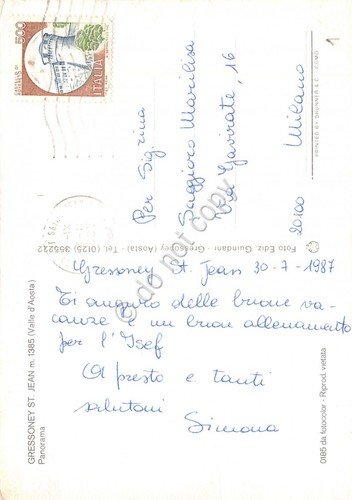 500
ITALIA
Per Sig.rina
Saggioro Marilisa
Via Gavirate, 16
20100 Milano
1
PRINTED BY GRUNNER & C. - COMO
Foto Ediz. Guindani - Gressoney (Aosta) - Tel. (0125) 355222
Gressoney St. Jean 30-7-1987
Ti auguro delle buone va-
canze e un buon allenamento
per l'Isef
A presto e tanti
salutoni
Simona
GRESSONEY ST. JEAN m. 1385 (Valle d'Aosta)
Panorama
0185 da fotocolor - Riprod. vietata
do not copy